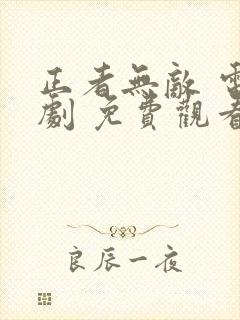 正者無敵 電
劇 免費觀看
良辰一夜